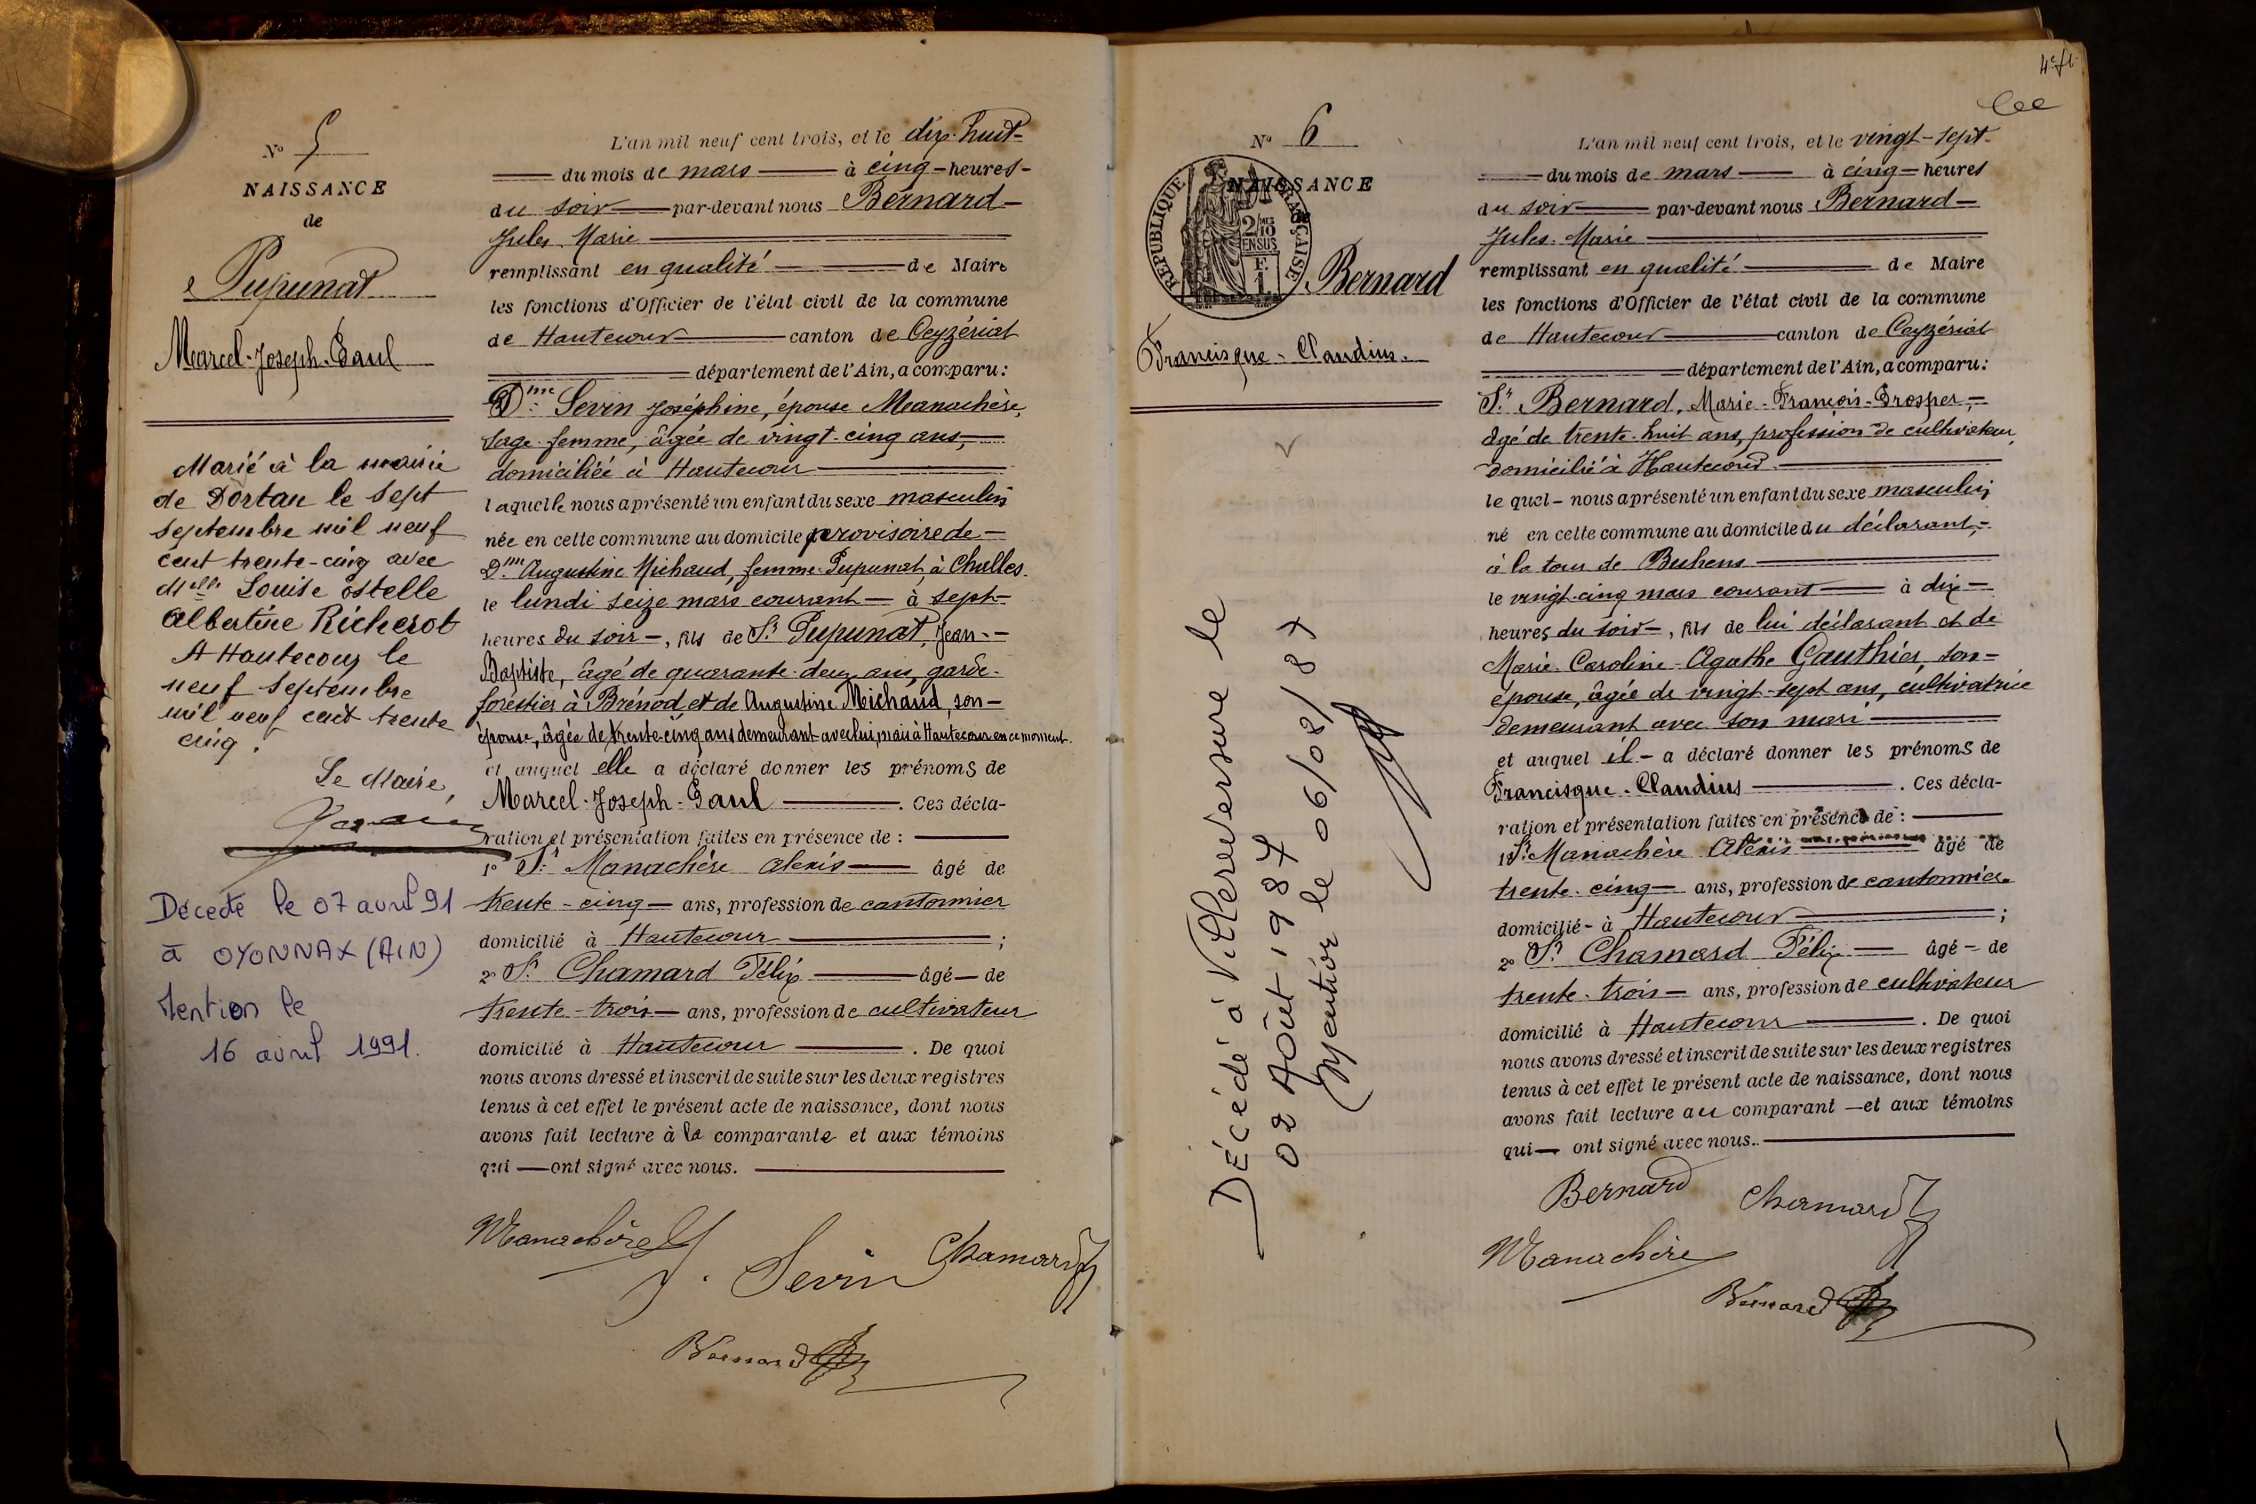 Nº 5
NAISSANCE
de
Pupunat
Marcel-Joseph-Paul
Marié à la mairie
de Dortan le sept
septembre mil neuf
cent trente-cinq avec
Melle Louise Estelle
Albertine Richerot
A Hautecour le
neuf septembre
mil neuf cent trente
cinq.
Le Maire,
Décédé le 07 avril 91
à OYONNAX (AIN)
Mention le
16 avril 1991.
L'an mil neuf cent trois, et le dix-huit
du mois de mars à cinq heures
du soir par-devant nous Bernard
Jules Marie
remplissant en qualité de Maire
les fonctions d'Officier de l'état civil de la commune
de Hautecour canton de Ceyzériat
département de l'Ain, a comparu :
Dme Sevin Joséphine, épouse Manachère,
sage-femme, âgée de vingt-cinq ans,
domiciliée à Hautecour
laquelle nous a présenté un enfant du sexe masculin
née en cette commune au domicile provisoire de
Dme Augustine Michaud, femme Pupunat, à Challes.
le lundi seize mars courant à sept
heures du soir, fils de Sr Pupunat, Jean-
Baptiste, âgé de quarante-deux ans, garde-
forestier à Brénod et de Augustine Michaud, son
épouse, âgée de trente-cinq ans demeurant avec lui, mais à Hautecour en ce moment.
et auquel elle a déclaré donner les prénoms de
Marcel-Joseph-Paul. Ces décla-
ration et présentation faites en présence de :
1º Sr Manachère Alexis âgé de
trente-cinq ans, profession de cantonnier
domicilié à Hautecour ;
2º Sr Chamard Félix âgé de
trente-trois ans, profession de cultivateur
domicilié à Hautecour. De quoi
nous avons dressé et inscrit de suite sur les deux registres
tenus à cet effet le présent acte de naissance, dont nous
avons fait lecture à la comparante et aux témoins
qui ont signé avec nous.
Manachère J. Sevin Chamard
Bernard
4e f
Nº 6
NAISSANCE
REPUBLIQUE FRANÇAISE
2/10
EN SUS
Bernard
Francisque-Claudius
Décédé à Villereversure le
02 Août 1987
(Mention le 06/08/87
L'an mil neuf cent trois, et le vingt-sept
du mois de mars à cinq heures
du soir par-devant nous Bernard
Jules Marie
remplissant en qualité de Maire
les fonctions d'Officier de l'état civil de la commune
de Hautecour canton de Ceyzériat
département de l'Ain, a comparu :
Sr Bernard, Marie-François-Prosper,
âgé de trente-huit ans, profession de cultivateur,
domicilié à Hautecour
le quel nous a présenté un enfant du sexe masculin
né en cette commune au domicile du déclarant,
à la tour de Buhens
le vingt-cinq mars courant à dix
heures du soir, fils de lui déclarant et de
Marie-Caroline-Agathe Gauthier, son
épouse, âgée de vingt-sept ans, cultivatrice
demeurant avec son mari
et auquel il a déclaré donner les prénoms de
Francisque-Claudius. Ces décla-
ration et présentation faites en présence de :
1º Sr Manachère Alexis âgé de
trente-cinq ans, profession de cantonnier
domicilié à Hautecour ;
2º Sr Chamard Félix âgé de
trente-trois ans, profession de cultivateur
domicilié à Hautecour. De quoi
nous avons dressé et inscrit de suite sur les deux registres
tenus à cet effet le présent acte de naissance, dont nous
avons fait lecture au comparant et aux témoins
qui ont signé avec nous.
Bernard Chamard
Manachère
Bernard